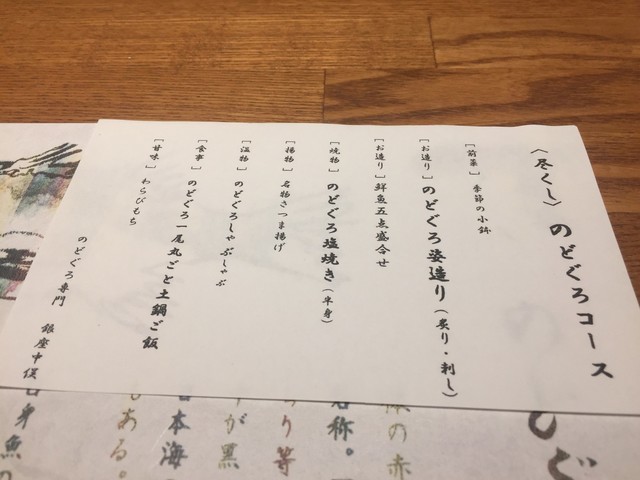 〈尽くし〉のどぐろコース
［前菜］季節の小鉢
［お造り］のどぐろ姿造り（炙り・刺し）
［お造り］鮮魚五点盛合せ
［焼物］のどぐろ塩焼き（半身）
［揚物］名物さつま揚げ
［温物］のどぐろしゃぶしゃぶ
［食事］のどぐろ一尾丸ごと土鍋ご飯
［甘味］わらびもち
のどぐろ専門 銀座中俣
どぐ
の赤
名称。
り等
が黒
日本海
もある。
白身魚の